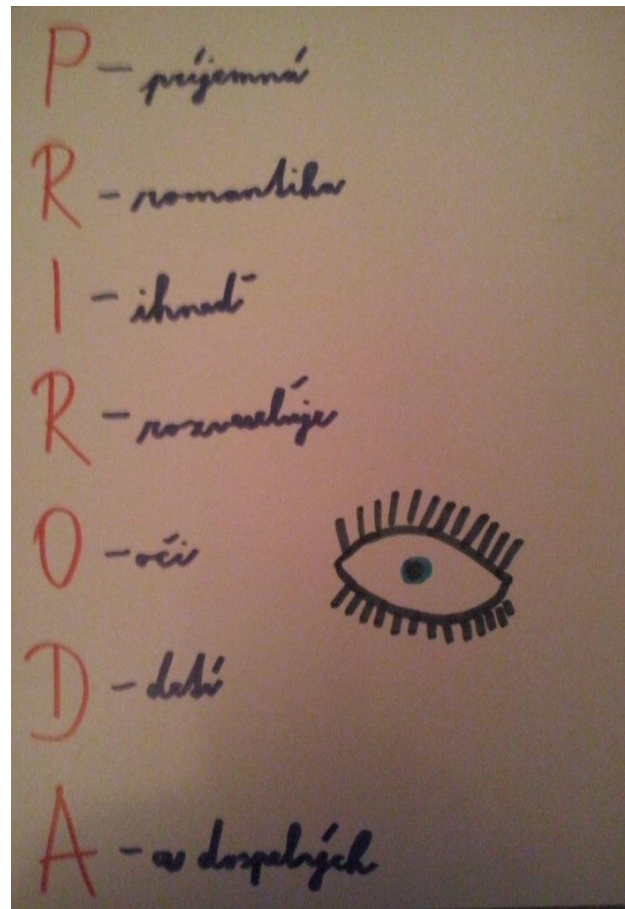 P - príjemná
R - romantika
I - ihneď
R - rozveseľuje
O - oči
D - detí
A - a dospelých